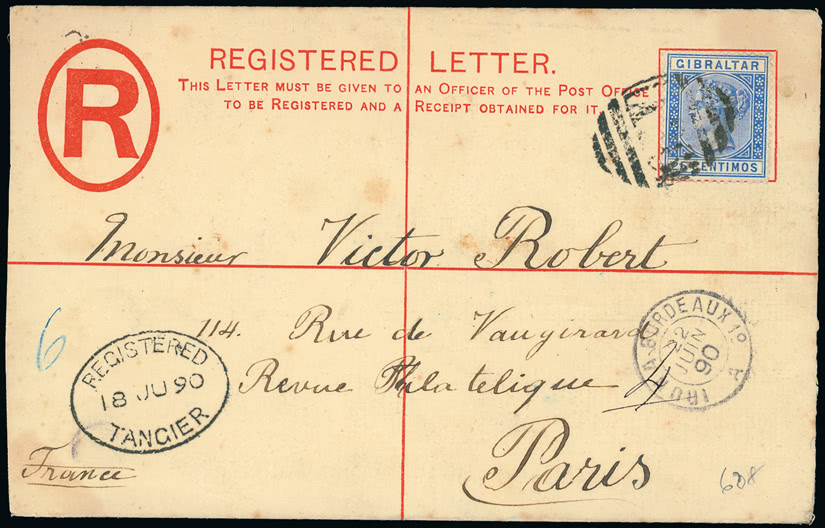 R
REGISTERED LETTER.
THIS LETTER MUST BE GIVEN TO AN OFFICER OF THE POST OFFICE
TO BE REGISTERED AND A RECEIPT OBTAINED FOR IT.
GIBRALTAR
CENTIMOS
Monsieur Victor Robert
114. Rue de Vaugirard
Revue Philatelique
Paris
France
6
REGISTERED
18 JU 90
TANGIER
BORDEAUX 1º
22
JUIN
90
A
608